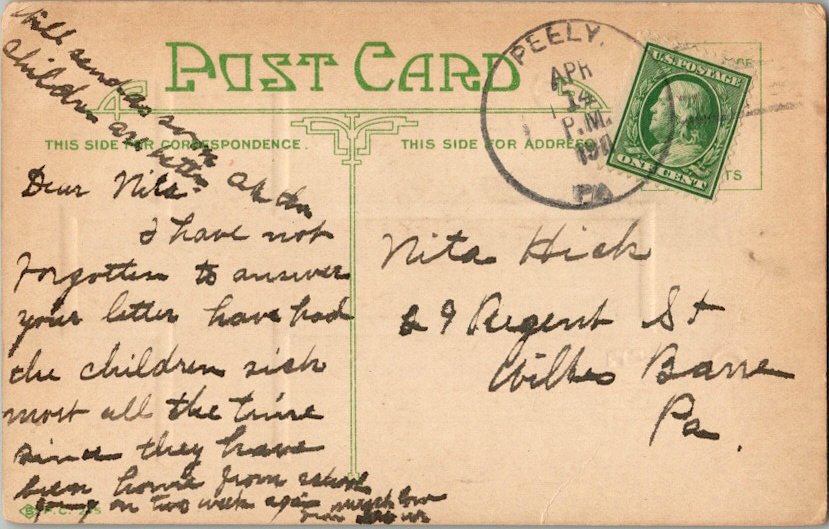 will send as soon
children are better
POST CARD
THIS SIDE FOR CORRESPONDENCE.
THIS SIDE FOR ADDRESS
PEELY.
APR
14
P.M.
191
PA
U.S. POSTAGE
ONE CENT
Dear Nita
I have not
forgotten to answer
your letter have had
the children sick
most all the time
since they have
been home from school
going on two week again
Nita Hick
29 Regent St
Wilkes Barre
Pa.